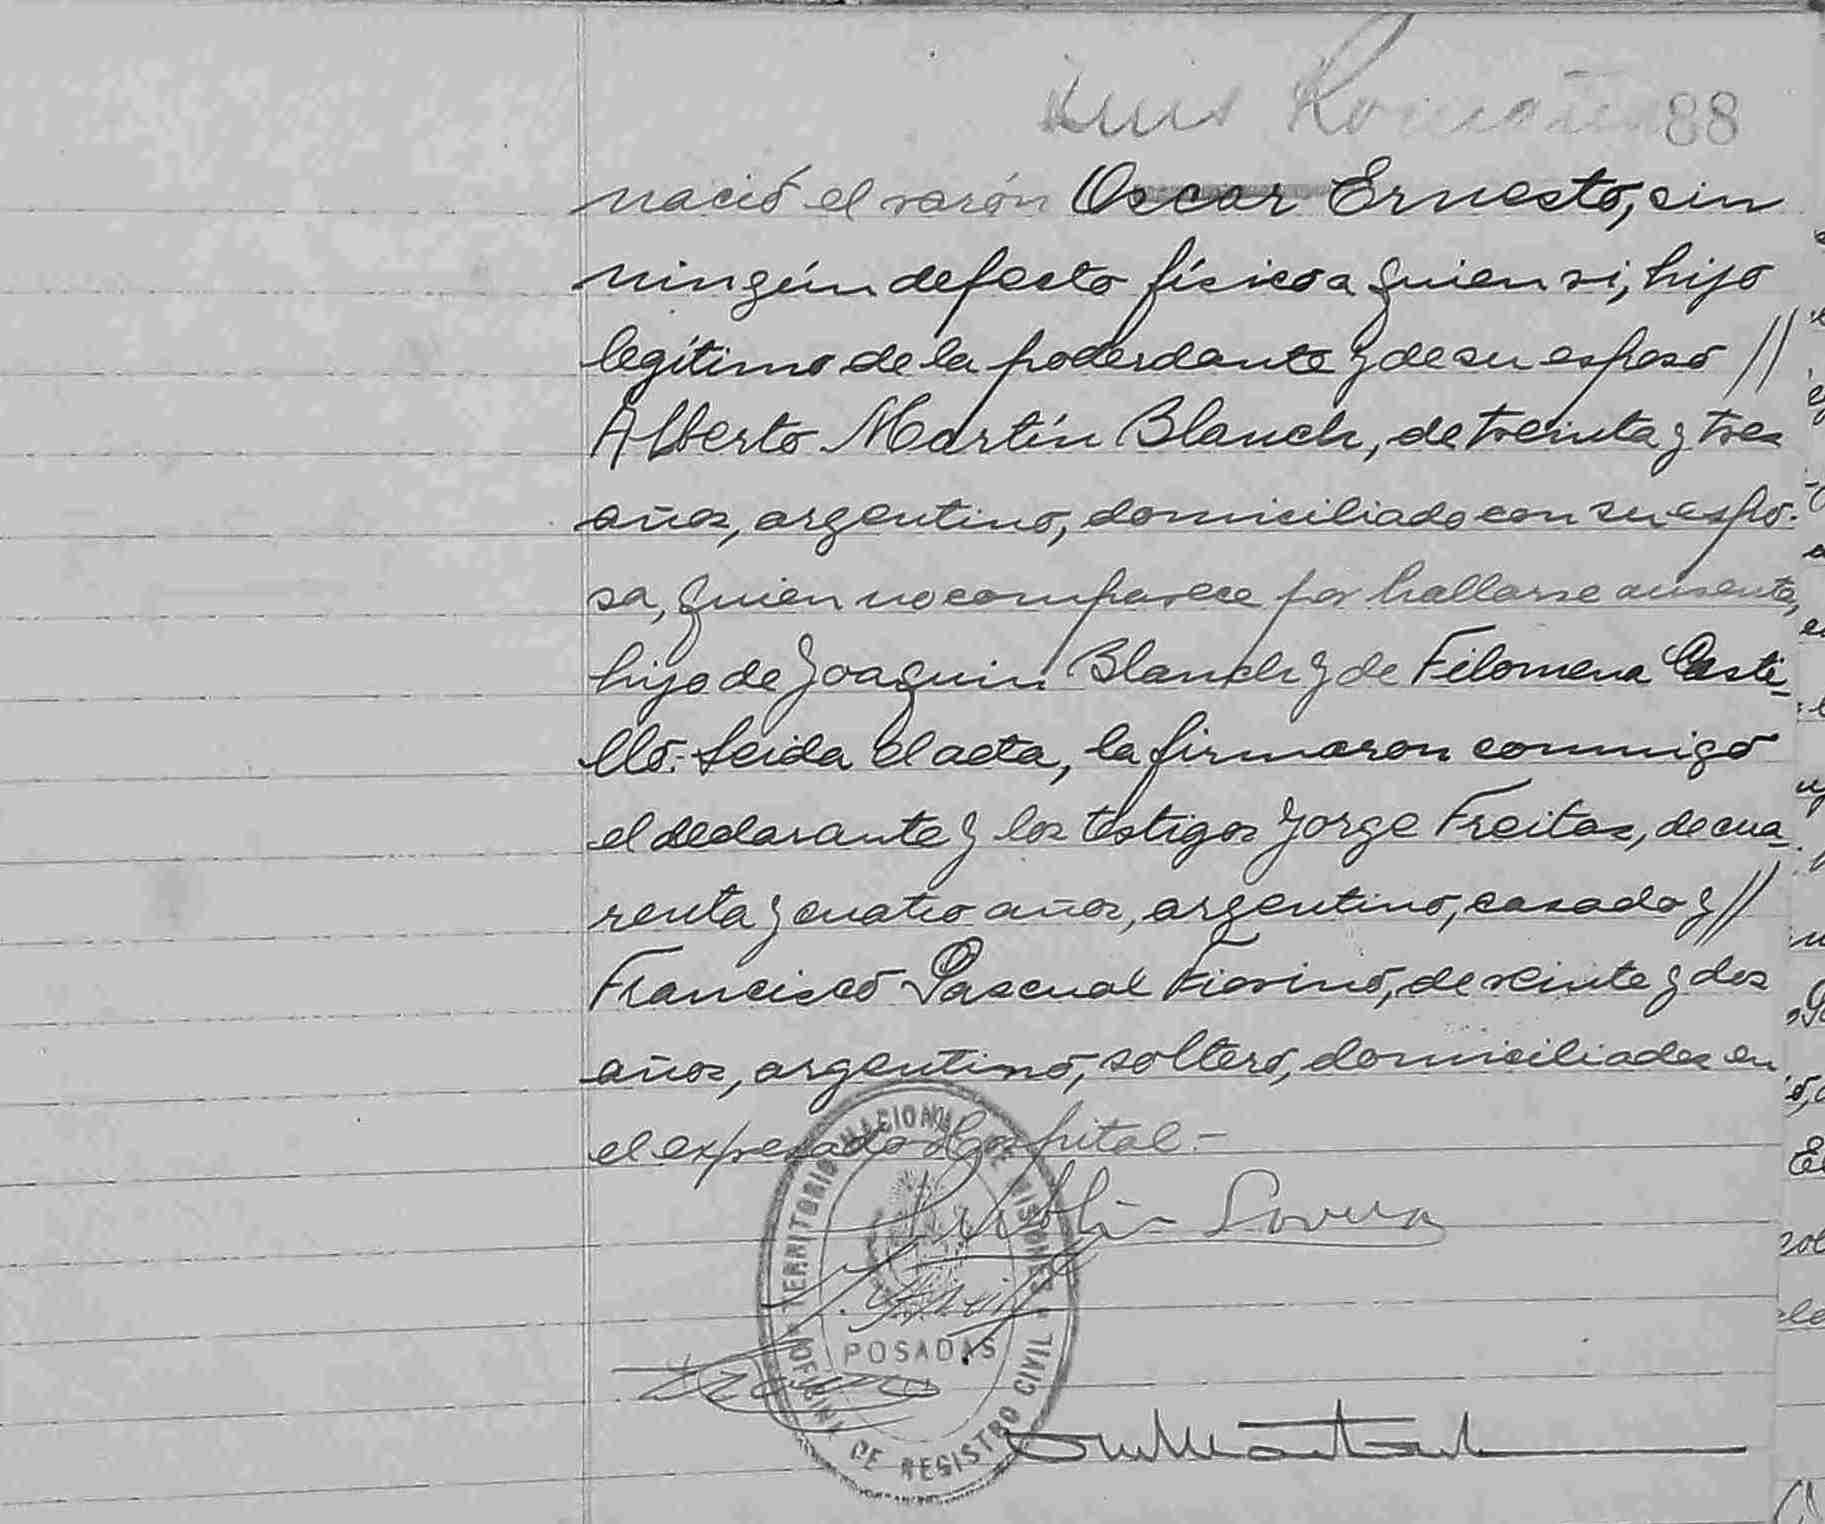 Luis 88
nació el varón Oscar Ernesto, sin
ningún defecto físico a quien vi, hijo
legítimo de la poderdante y de su esposo //
Alberto Martín Blanch, de treinta y tres
años, argentino, domiciliado con su espo-
sa, quien no comparece por hallarse ausente,
hijo de Joaquin Blanch y de Filomena Casti-
lló.- Leida el acta, la firmaron conmigo
el declarante y los testigos Jorge Freitas, de cua-
renta y cuatro años, argentino, casado y //
Francisco Pascual Fiorino, de veinte y dos
años, argentino, soltero, domiciliados en
el expresado Hospital.-
TERRITORIO NACIONAL DE MISIONES
POSADAS
OFICINA DE REGISTRO CIVIL